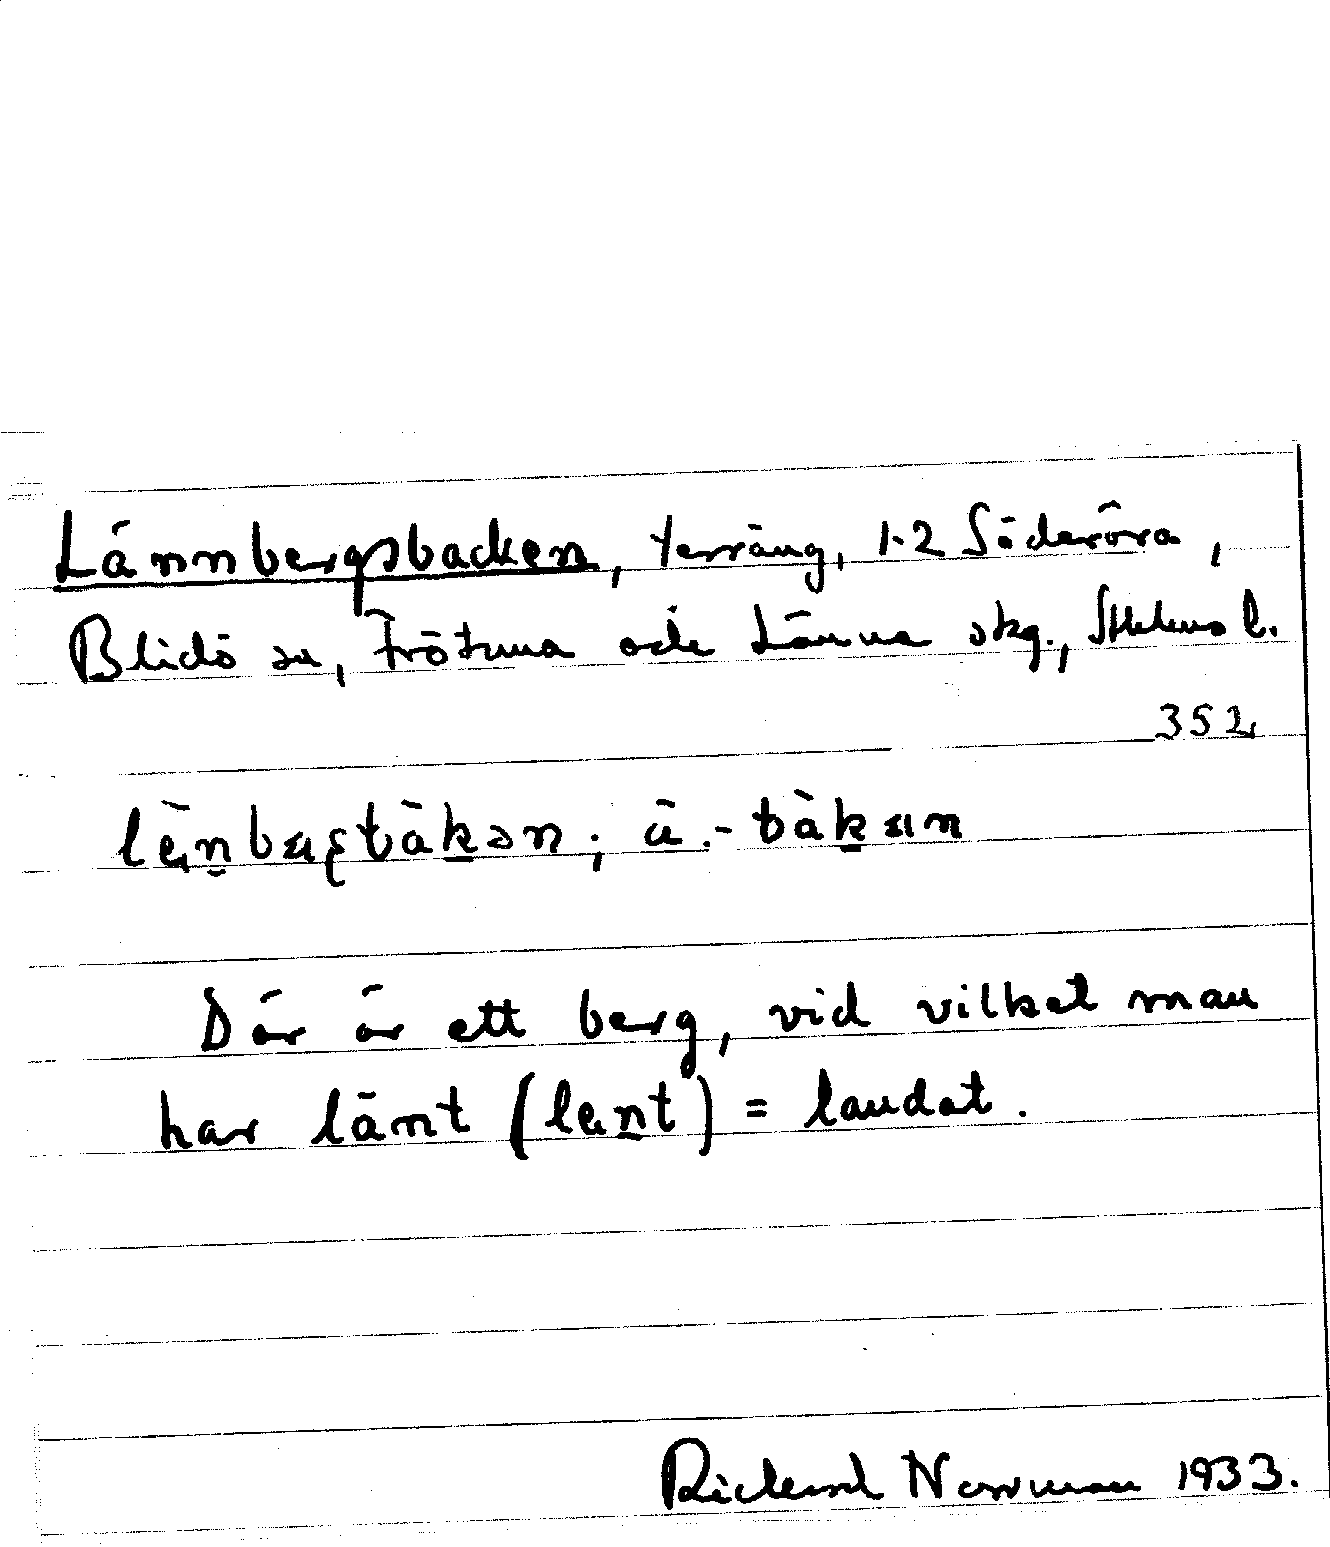 Lännbergsbacken, terräng, 1-2 Söderöra,
Blidö sn, Frötuna och Länna skg., Sthlms l.
352
Där är ett berg, vid vilket man
har länt (lent) = landat.
Rickard Norrman 1933.